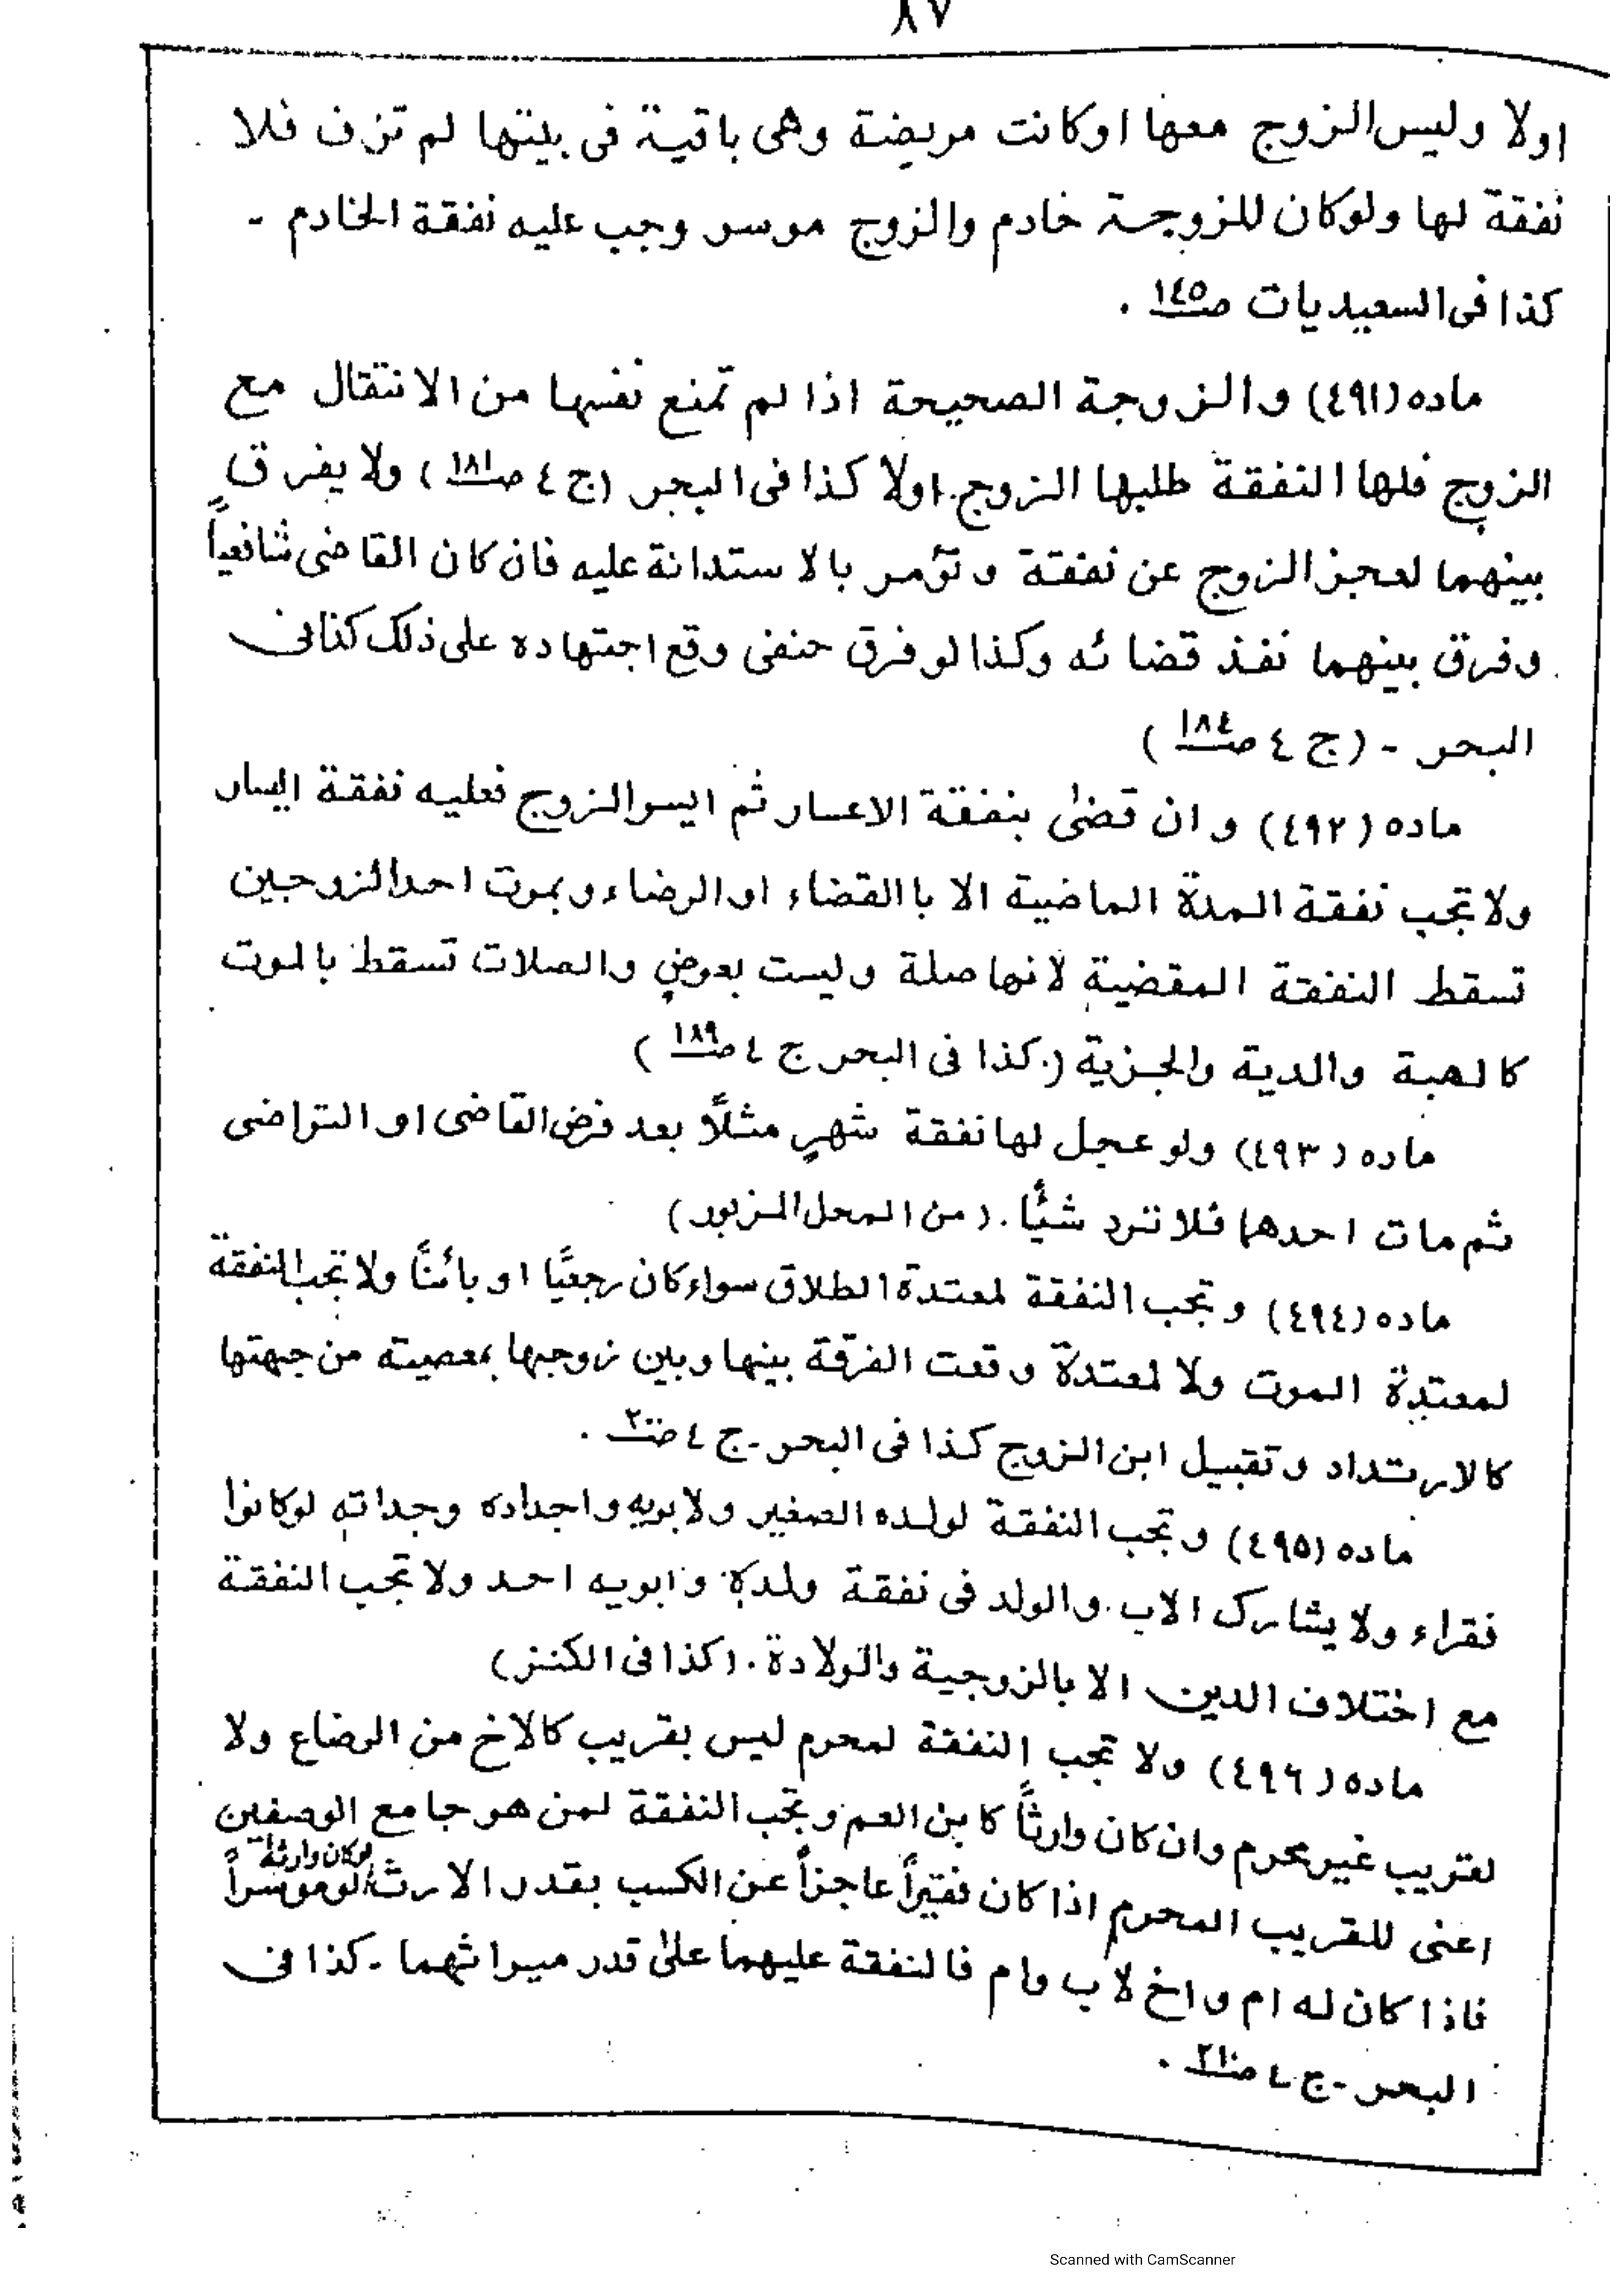 ٨٧
اولا وليس الزوج معها اوكانت مريضة وهى باقية فى بيتها لم تزف فلا
نفقة لها ولوكان للزوجة خادم والزوج موسر وجب عليه نفقة الخادم -
كذا فى السعيديات صـ١٤٥ .
ماده (٤٩١) والزوجة الصحيحة اذا لم تمنع نفسها من الانتقال مع
الزوج فلها النفقة طلبها الزوج اولا كذا فى البحر (ج ٤ صـ١٨١) ولا يفرق
بينهما لعجز الزوج عن نفقة وتؤمر بالاستدانة عليه فان كان القاضى شافعياً
وفرق بينهما نفذ قضائه وكذا لو فرق حنفى وقع اجتهاده على ذلك كذا فى
البحر - (ج ٤ صـ١٨٤)
ماده (٤٩٢) وان قضىٰ بنفقة الاعسار ثم ايسر الزوج فعليه نفقة اليسار
ولا تجب نفقة المدة الماضية الا باالقضاء او الرضاء وبموت احد الزوجين
تسقط النفقة المقضية لانها صلة وليست بعوضٍ والصلات تسقط بالموت
كالهبة والدية والجزية (كذا فى البحر ج ٤ صـ١٨٩)
ماده (٤٩٣) ولو عجل لها نفقة شهرٍ مثلاً بعد فرض القاضى او التراضى
ثم مات احدهما فلا ترد شيئًا . (من المحل المزبور)
ماده (٤٩٤) وتجب النفقة لمعتدة الطلاق سواء كان رجعيًا او بائنًا ولا تجب النفقة
لمعتدة الموت ولا لمعتدة وقعت الفرقة بينها وبين زوجها بمعصيته من جهتها
كالارتداد وتقبيل ابن الزوج كذا فى البحر - ج ٤ صـ٢٠٠ .
ماده (٤٩٥) وتجب النفقة لولده الصغير ولابويه واجداده وجداته لوكانوا
فقراء ولا يشارك الاب والولد فى نفقة ولده وابويه احد ولا تجب النفقة
مع اختلاف الدين الا بالزوجية والولادة . (كذا فى الكنز)
ماده (٤٩٦) ولا تجب النفقة لمحرم ليس بقريب كالاخ من الرضاع ولا
لقريب غير محرم وان كان وارثاً كابن العم وتجب النفقة لمن هو جامع الوصفين
لوكان وارثة
اعنى للقريب المحرم اذا كان فقيراً عاجزاً عن الكسب بقدر الارث لو موسراً
فاذا كان له ام واخ لاب وام فالنفقة عليهما علىٰ قدر ميراثهما - كذا فى
البحر - ج ٤ صـ٢١٠ .
Scanned with CamScanner